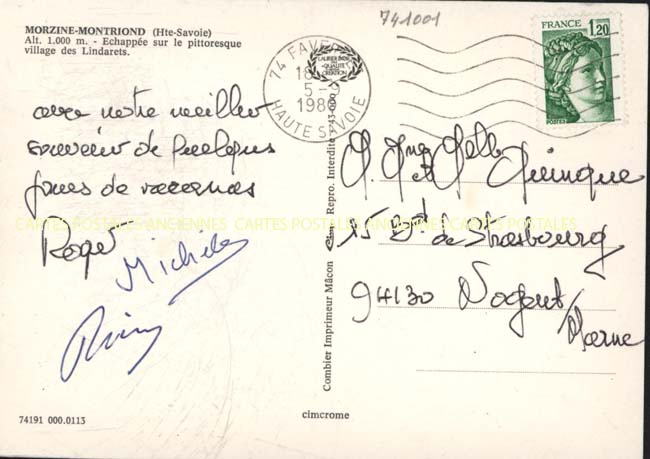 741001
MORZINE-MONTRIOND (Hte-Savoie)
Alt. 1.000 m. - Echappée sur le pittoresque
village des Lindarets.
74 FAVE
18
5-
198
HAUTE SAVOIE
LAURIER D'OR
QUALITÉ
CREATION
FRANCE
1,20
POSTES
avec notre meilleur
souvenir de quelques
jours de vacances
Roger
Michele
CARTES POSTALES ANCIENNES CARTES POSTALES ANCIENNES CARTES POSTALES
Combier Imprimeur Mâcon Repro. Interdite
M. Mme Melle
et Quinque
15 Bd de Strasbourg
94130 Nogent/
Marne
74191 000.0113
cimcrome